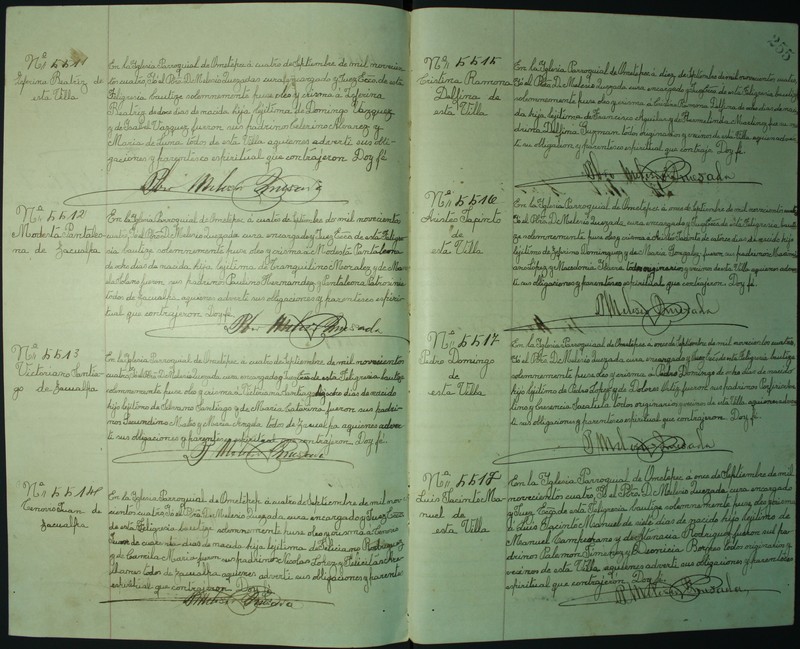 Nº 5511
Zeferina Beatriz de
esta Villa
En la Yglesia Parroquial de Ometepec á cuatro de Septiembre de mil novecien
tos cuatro, Yo el Pbro. D. Melesio Quezada cura encargado y Juez Ecco. de esta
Feligresia, bautize solemnemente puse oleo y crisma á Zeferina
Beatriz de dos dias de nacida hija legitima de Domingo Vazquez
y de Ysabel Vazquez, fueron sus padrinos Ceferino Alvarez y
Maria de Luna todos de esta Villa aquienes adverti sus obli-
gaciones y parentesco espiritual que contrajeron Doy fé
Pbro Melesio Quesada
Nº 5512
Modesta Pantaleo
na de Zacualpa
En la Yglesia Parroquial de Ometepec á cuatro de Septiembre de mil novecientos
cuatro, Yo el Pbro. D. Melesio Quezada cura encargado y Juez Ecco. de esta Feligre
sia, bautize solemnemente puse oleo y crisma á Modesta Pantaleona
de ocho dias de nacida, hija legitima de Tranquilino Morales y de
fueron sus padrinos Paulino Hernandez y Pantaleona
todos de Zacualpa, aquienes adverti sus obligaciones y parentesco espiri
tual que contrajeron Doy fé
Pbro Melesio Quesada
Nº 5513
Victoriano Santia
go de Zacualpa
En la Yglesia Parroquial de Ometepec á cuatro de Septiembre de mil novecientos
cuatro, Yo el Pbro. D. Melesio Quezada cura encargado y Juez Ecco. de esta Feligresia bautize
solemnemente puse oleo y crisma á Victoriano Santiago de ocho dias de nacido
hijo legitimo de Silvano Santiago y de Maria Catarina fueron sus padri
nos Secundino y Maria todos de Zacualpa aquienes adver
ti sus obligaciones y parentesco espiritual que contrajeron Doy fé
P. Melesio Quesada
Nº 5514
de
Zacualpa
En la Yglesia Parroquial de Ometepec á cuatro de Septiembre de mil nove
cientos cuatro, Yo el Pbro. D. Melesio Quezada cura encargado y Juez Ecco.
de esta Feligresia bautize solemnemente puse oleo y crisma á
Juan de cuatro dias de nacido hijo legitimo de Feliciano Rodriguez
y de Camila Maria fueron sus padrinos Nicolas Lopez y
todos de Zacualpa aquienes adverti sus obligaciones y parentesco
espiritual que contrajeron Doy fé
P. Melesio Quesada
255
Nº 5515
Cristina Ramona
Delfina de
esta Villa
En la Yglesia Parroquial de Ometepec á diez de Septiembre de mil novecientos cuatro,
Yo el Pbro. D. Melesio Quezada cura encargado y Juez Ecco. de esta Feligresia bautize
solemnemente puse oleo y crisma á Cristina Ramona Delfina de ocho dias de naci
da, hija legitima de Francisco Aguilar y de fue su ma
drina Delfina Guzman todos originarios y vecinos de esta Villa aquien adver
ti su obligacion y parentesco espiritual que contrajo. Doy fé.
Pbro Melesio Quesada
Nº 5516
Jacinto
de
esta Villa
En la Yglesia Parroquial de Ometepec á once de Septiembre de mil novecientos cuatro
Yo el Pbro. D. Melesio Quezada cura encargado y Juez Ecco. de esta Feligresia bautize
solemnemente puse oleo y crisma á Jacinto de dias de nacido hijo
legitimo de Zeferino Dominguez y de Maria Gonzalez fueron sus padrinos
Lopez y Macedonia todos originarios y vecinos de esta Villa aquienes adver
ti sus obligaciones y parentesco espiritual que contrajeron Doy fé.
P. Melesio Quesada
Nº 5517
Pedro Domingo
de
esta Villa
En la Yglesia Parroquial de Ometepec á once de Septiembre de mil novecientos cuatro,
Yo el Pbro. D. Melesio Quezada cura encargado y Juez Ecco. de esta Feligresia bautize
solemnemente puse oleo y crisma á Pedro Domingo de ocho dias de nacido
hijo legitimo de Pedro Lopez y de Dolores fueron sus padrinos
y todos originarios y vecinos de esta Villa, aquienes adver
ti sus obligaciones y parentesco espiritual que contrajeron Doy fé.
P. Melesio Quesada
Nº 5518
Luis Jacinto Ma
nuel de
esta Villa
En la Yglesia Parroquial de Ometepec á once de Septiembre de mil
novecientos cuatro, Yo el Pbro. D. Melesio Quezada, cura encargado
y Juez Ecco. de esta Feligresia bautize solemnemente puse oleo y crisma
á Luis Jacinto Manuel de siete dias de nacido hijo legitimo de
Manuel Campechano y de Rodriguez fueron sus pa
drinos Palemon Jimenez y todos originarios y
vecinos de esta Villa aquienes adverti sus obligaciones y parentesco
espiritual que contrajeron Doy fé.
P. Melesio Quesada